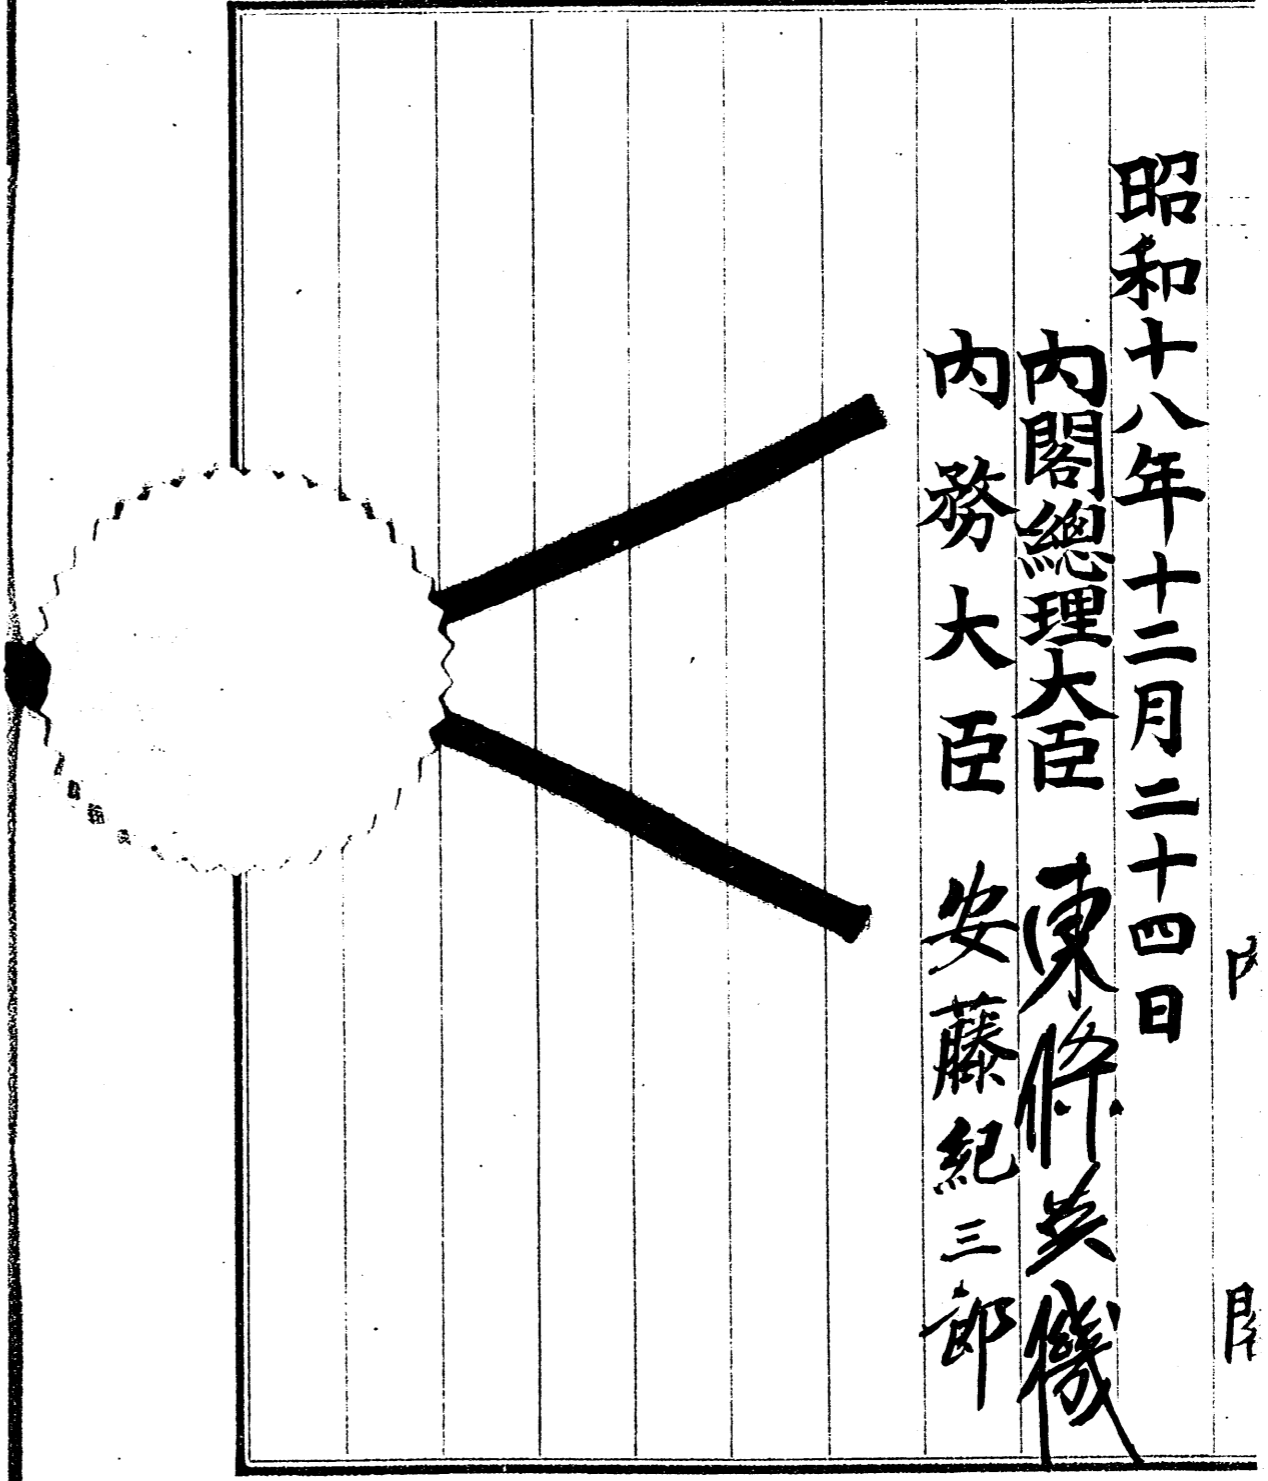 昭和十八年十二月二十四日
内閣總理大臣 東條英機
内務大臣 安藤紀三郎